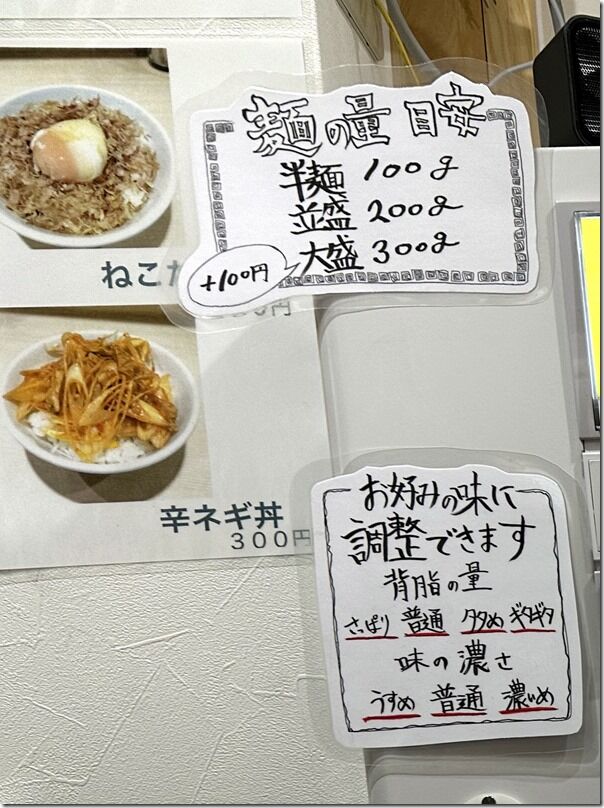 麺の量 目安
半麺 100g
並盛 200g
大盛 300g
+100円
ねこ
円
辛ネギ丼
300円
お好みの味に
調整できます
背脂の量
さっぱり 普通 多め ギタギタ
味の濃さ
うすめ 普通 濃いめ